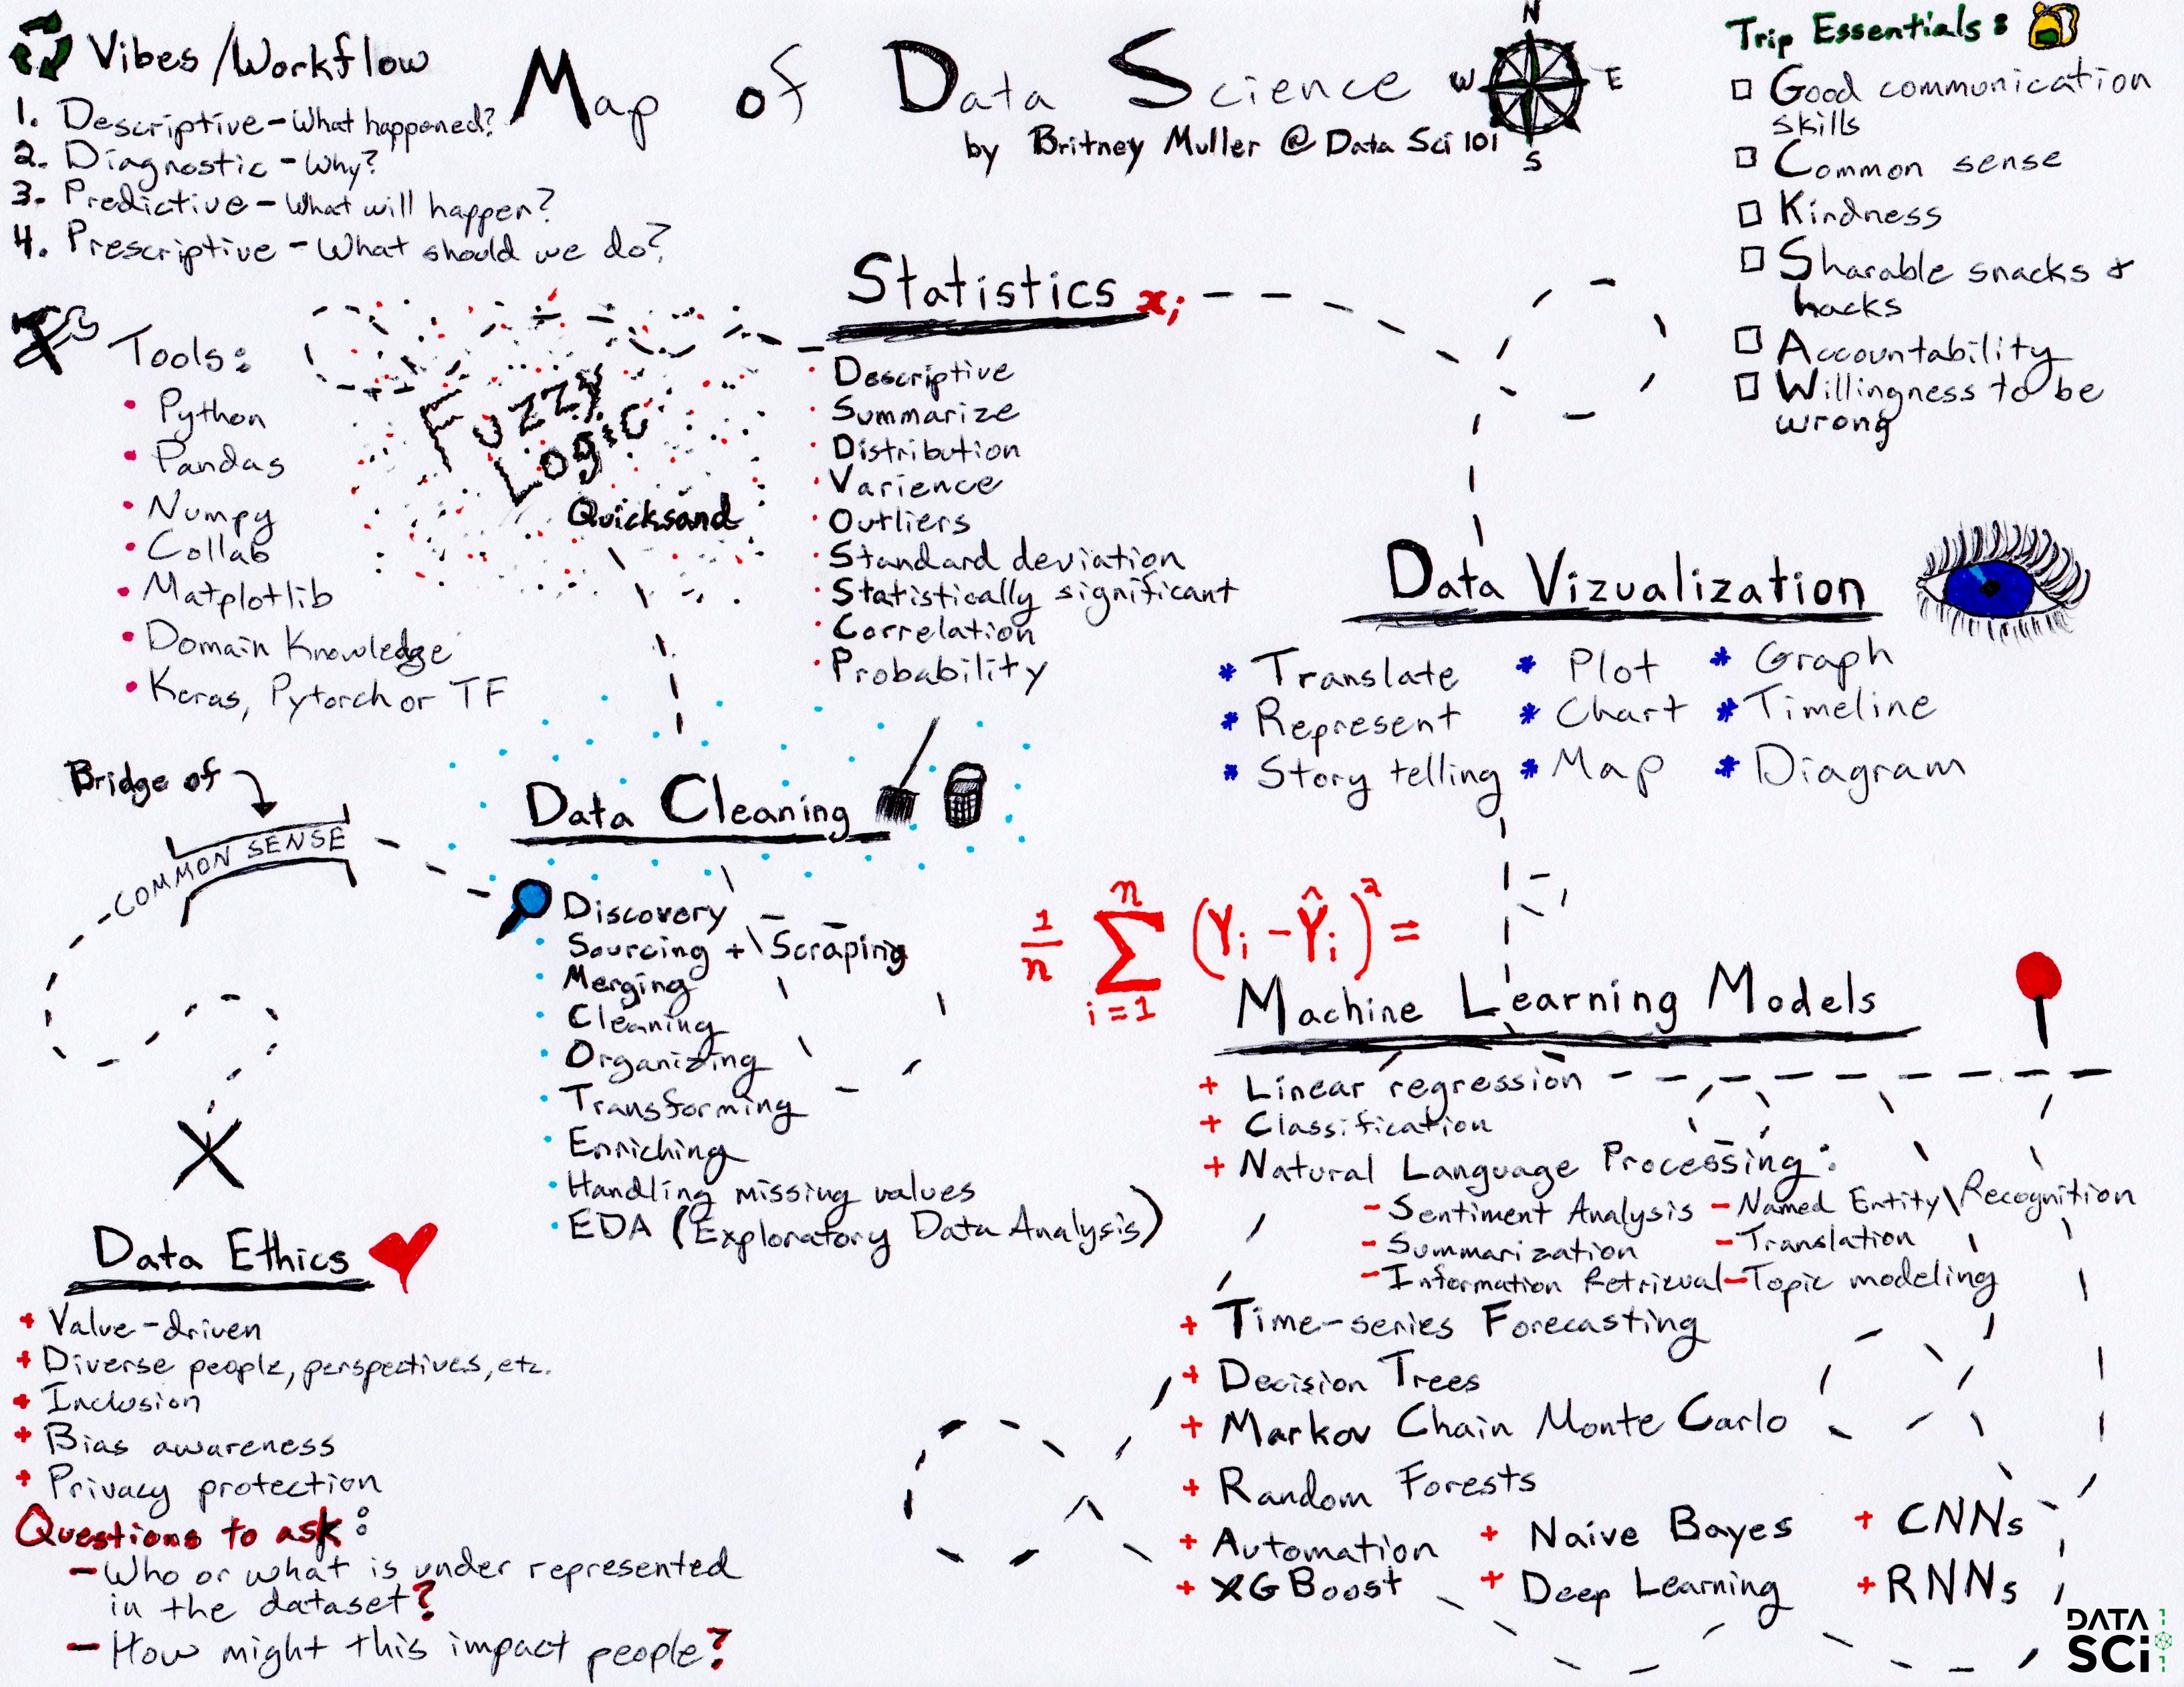 Vibes/Workflow
1. Descriptive - What happened?
2. Diagnostic - Why?
3. Predictive - What will happen?
4. Prescriptive - What should we do?
Map of Data Science
by Britney Muller @ Data Sci 101
N
W
E
S
Trip Essentials:
Good communication
skills
Common sense
Kindness
Sharable snacks &
hacks
Accountability
Willingness to be
wrong
Tools:
Python
Pandas
Numpy
Collab
Matplotlib
Domain Knowledge
Keras, Pytorch or TF
Fuzzy
Logic
Quicksand
Statistics xi
Descriptive
Summarize
Distribution
Varience
Outliers
Standard deviation
Statistically significant
Correlation
Probability
Data Vizualization
* Translate * Plot * Graph
* Represent * Chart * Timeline
* Story telling * Map * Diagram
Bridge of
COMMON SENSE
Data Cleaning
Discovery
Sourcing + Scraping
Merging
Cleaning
Organizing
Transforming
Enriching
Handling missing values
EDA (Exploratory Data Analysis)
1/n n ∑ i=1 (Yi - Ŷi)² =
Machine Learning Models
+ Linear regression
+ Classification
+ Natural Language Processing:
- Sentiment Analysis - Named Entity Recognition
- Summarization - Translation
- Information Retrieval - Topic modeling
+ Time-series Forecasting
+ Decision Trees
+ Markov Chain Monte Carlo
+ Random Forests
+ Automation + Naive Bayes + CNNs
+ XG Boost + Deep Learning + RNNs
X
Data Ethics
+ Value-driven
+ Diverse people, perspectives, etc.
+ Inclusion
+ Bias awareness
+ Privacy protection
Questions to ask:
- Who or what is under represented
in the dataset?
- How might this impact people?
DATA
SCi
101